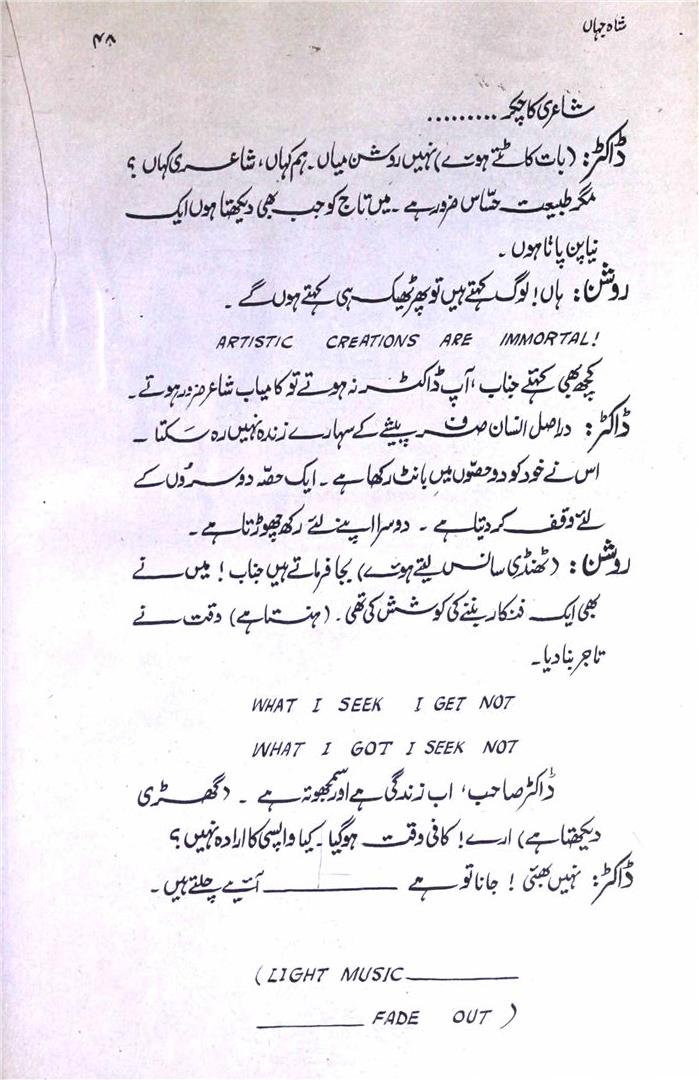 شاہ جہاں
۴۸
شاعری کا چکر .........
ڈاکٹر: (بات کاٹتے ہوئے) نہیں روشن میاں۔ ہم کہاں، شاعری کہاں ؟
مگر طبیعت حسّاس ضرور ہے ۔ میں تاج کو جب بھی دیکھتا ہوں ایک
نیا پن پاتا ہوں ۔
روشن: ہاں! لوگ کہتے ہیں تو پھر ٹھیک ہی کہتے ہوں گے ۔
ARTISTIC CREATIONS ARE IMMORTAL!
کچھ بھی کہئے جناب ، آپ ڈاکٹر نہ ہوتے تو کامیاب شاعر ضرور ہوتے ۔
ڈاکٹر: دراصل انسان صرف پیشے کے سہارے زندہ نہیں رہ سکتا ۔
اس نے خود کو دو حصّوں میں بانٹ رکھا ہے ۔ ایک حصّہ دوسروں کے
لئے وقف کر دیتا ہے ۔ دوسرا اپنے لئے رکھ چھوڑتا ہے ۔
روشن: (ٹھنڈی سانس لیتے ہوئے) بجا فرماتے ہیں جناب ! میں نے
بھی ایک فنکار بننے کی کوشش کی تھی ۔ (ہنستا ہے) وقت نے
تاجر بنا دیا ۔
WHAT I SEEK I GET NOT
WHAT I GOT I SEEK NOT
ڈاکٹر صاحب ، اب زندگی ہے اور سمجھوتہ ہے ۔ (گھڑی
دیکھتا ہے) ارے ! کافی وقت ہو گیا ۔ کیا واپسی کا ارادہ نہیں ؟
ڈاکٹر: نہیں بھئی ! جانا تو ہے ________ آئیے چلتے ہیں ۔
(LIGHT MUSIC________
________ FADE OUT )